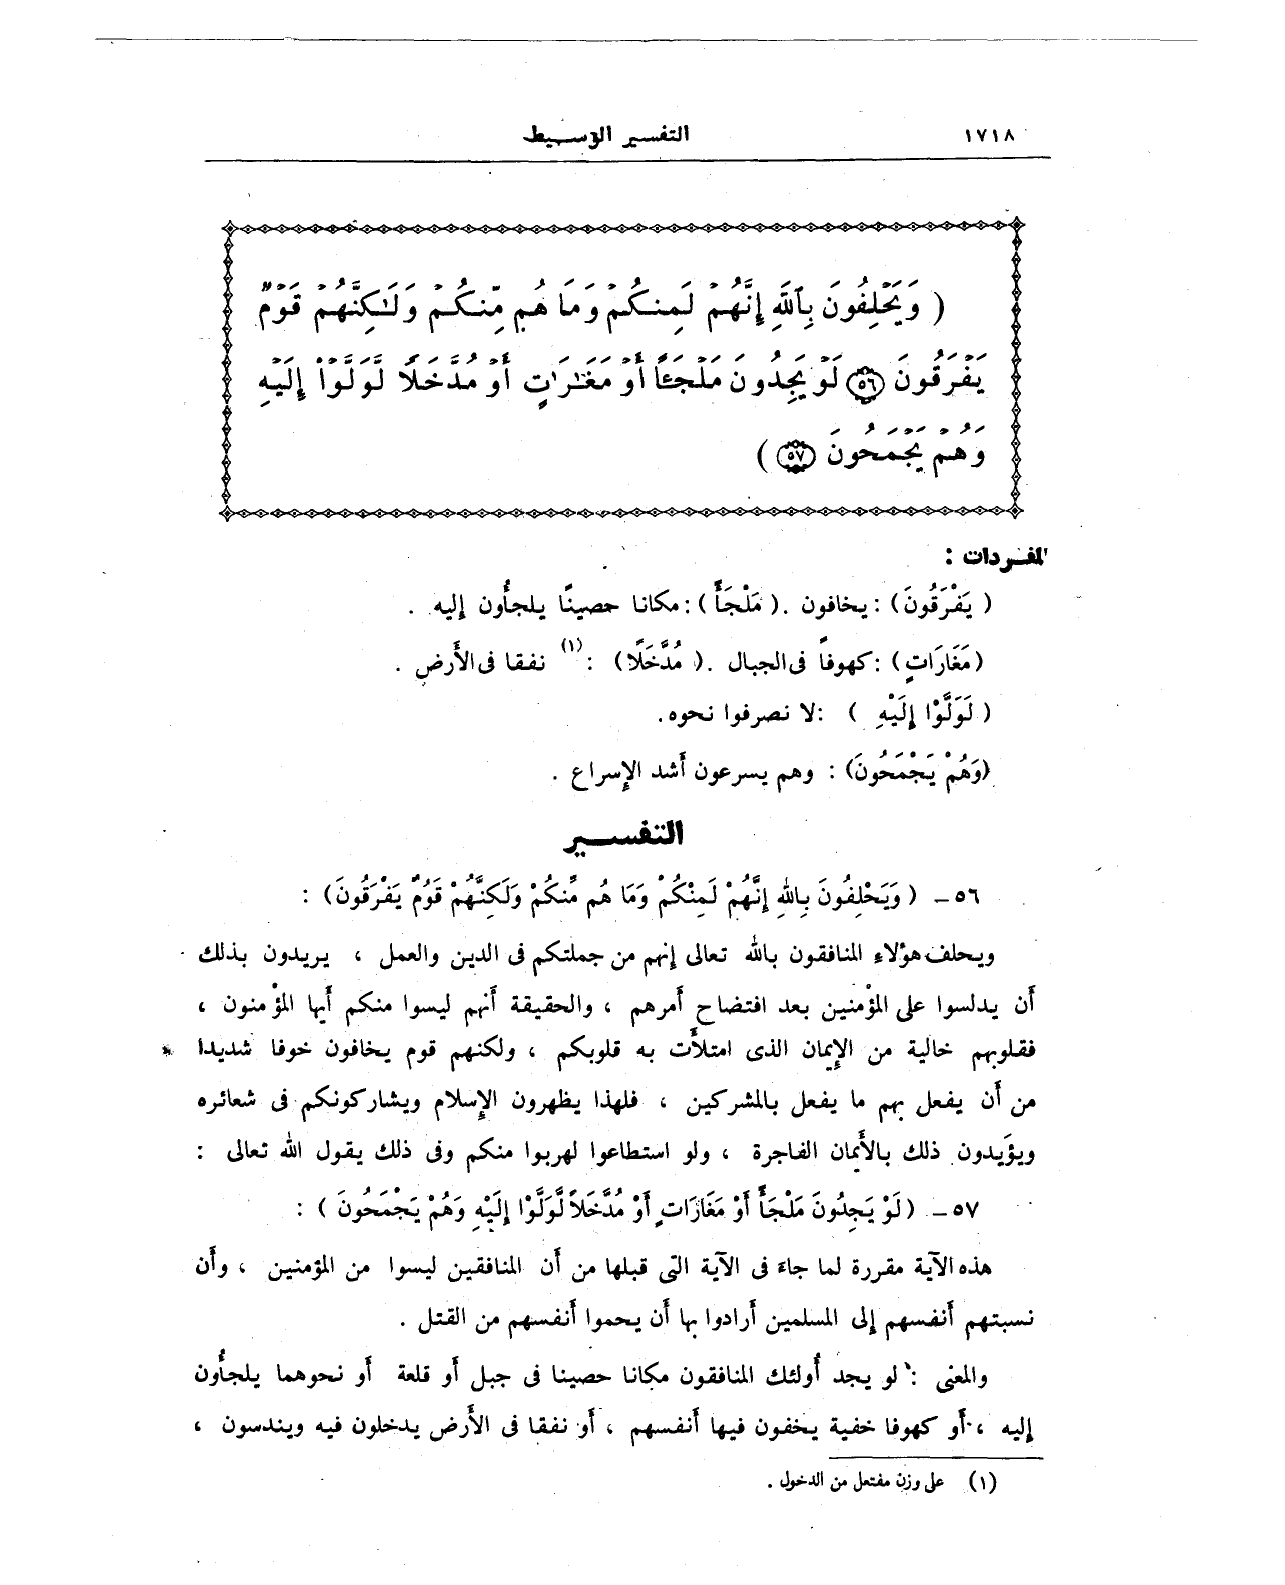 ١٧١٨
التفسير الوسيط
( وَيَحْلِفُونَ بِٱللَّهِ إِنَّهُمْ لَمِنكُمْ وَمَا هُم مِّنكُمْ وَلَٰكِنَّهُمْ قَوْمٌ
يَفْرَقُونَ ﴿٥٦﴾ لَوْ يَجِدُونَ مَلْجَـًٔا أَوْ مَغَٰرَٰتٍ أَوْ مُدَّخَلًا لَّوَلَّوْا۟ إِلَيْهِ
وَهُمْ يَجْمَحُونَ ﴿٥٧﴾ )
المفردات :
( يَفْرَقُونَ ) : يخافون . ( مَلْجَأً ) : مكانا حصينًا يلجأُون إليه .
( مَغَارَاتٍ ) : كهوفاً فى الجبال . ( مُدَّخَلًا ) (١) : نفقا فى الأَرض .
( لَوَلَّوْا إِلَيْهِ ) : لا نصرفوا نحوه .
( وَهُمْ يَجْمَحُونَ ) : وهم يسرعون أَشد الإِسراع .
التفسير
٥٦ – ( وَيَحْلِفُونَ بِاللهِ إِنَّهُمْ لَمِنْكُمْ وَمَا هُم مِّنكُمْ وَلَكِنَّهُمْ قَوْمٌ يَفْرَقُونَ ) :
ويحلف هؤلاءِ المنافقون بالله تعالى إنهم من جملتكم فى الدين والعمل ، يريدون بذلك
أَن يدلسوا على المؤْمنين بعد افتضاح أَمرهم ، والحقيقة أَنهم ليسوا منكم أَيها المؤْمنون ،
فقلوبهم خالية من الإِيمان الذى امتلأَت به قلوبكم ، ولكنهم قوم يخافون خوفا شديدا
من أَن يفعل بهم ما يفعل بالمشركين ، فلهذا يظهرون الإِسلام ويشاركونكم فى شعائره
ويؤَيدون ذلك بالأَيمان الفاجرة ، ولو استطاعوا لهربوا منكم وفى ذلك يقول الله تعالى :
٥٧ – ( لَوْ يَجِدُونَ مَلْجَأً أَوْ مَغَارَاتٍ أَوْ مُدَّخَلاً لَّوَلَّوْا إِلَيْهِ وَهُمْ يَجْمَحُونَ ) :
هذه الآية مقررة لما جاءَ فى الآية التى قبلها من أَن المنافقين ليسوا من المؤمنين ، وأَن
نسبتهم أَنفسهم إلى المسلمين أَرادوا بها أَن يحموا أَنفسهم من القتل .
والمعنى : لو يجد أُولئك المنافقون مكانا حصينا فى جبل أَو قلعة أَو نحوهما يلجأُون
إليه ، أَو كهوفا خفية يخفون فيها أَنفسهم ، أَو نفقا فى الأَرض يدخلون فيه ويندسون ،
(١) على وزن مفتعل من الدخول .